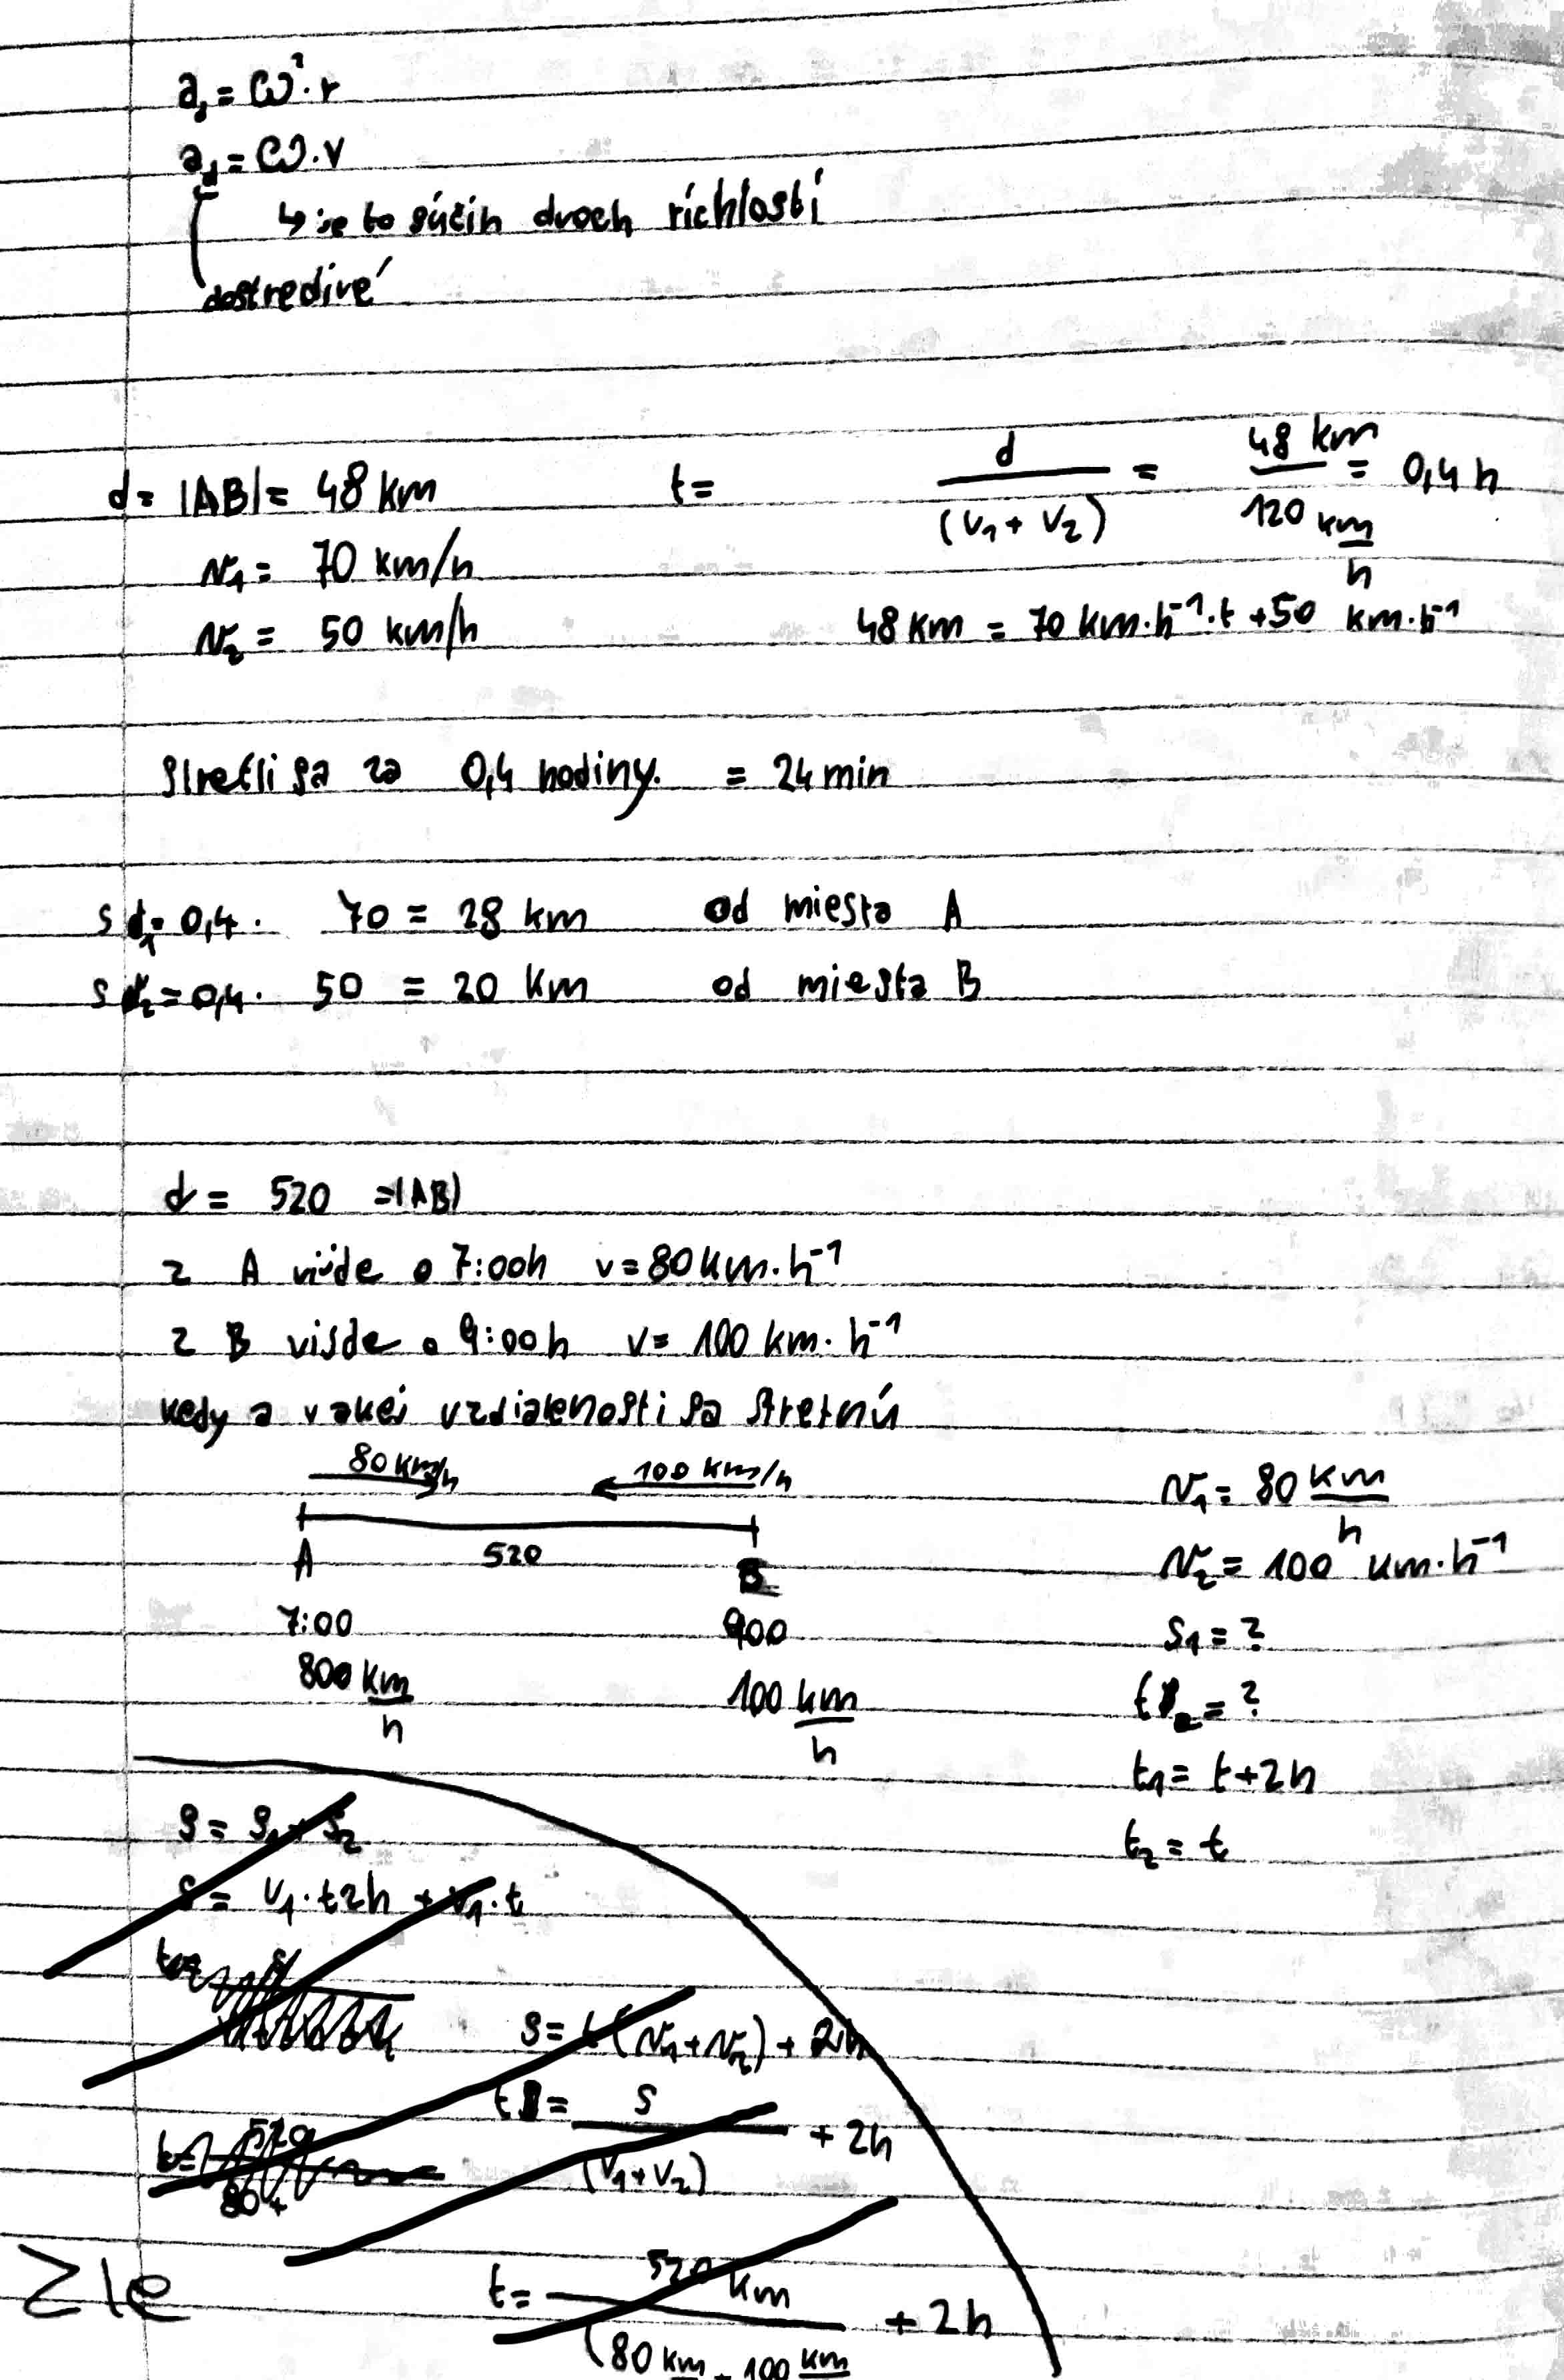 a_d = ω²·r
a_d = ω·v
↳ je to súčin dvoch ríchlostí
dostredivé
d = |AB| = 48 km
t = d/(v₁ + v₂) = 48 km/120 km/h = 0,4 h
v₁ = 70 km/h
v₂ = 50 km/h
48 km = 70 km·h⁻¹·t + 50 km·h⁻¹
Stretli sa za 0,4 hodiny. = 24 min
s₁ = 0,4 · 70 = 28 km od miesta A
s₂ = 0,4 · 50 = 20 km od miesta B
d = 520 = |AB|
z A víjde o 7:00h v = 80 km·h⁻¹
z B víjde o 9:00h v = 100 km·h⁻¹
kedy a v akej vzdialenosti sa stretnú
80 km/h 100 km/h
A 520 B
7:00 900
800 km/h 100 km/h
v₁ = 80 km/h
v₂ = 100 km·h⁻¹
s₁ = ?
t₂ = ?
t₁ = t + 2h
t₂ = t
s = s₁ + s₂
s = v₁·t2h + v₁·t
s = t(v₁ + v₂) + 2h
t = s/(v₁ + v₂) + 2h
t = 520
80 +
Zle
t = 520 km/(80 km + 100 km + 2h